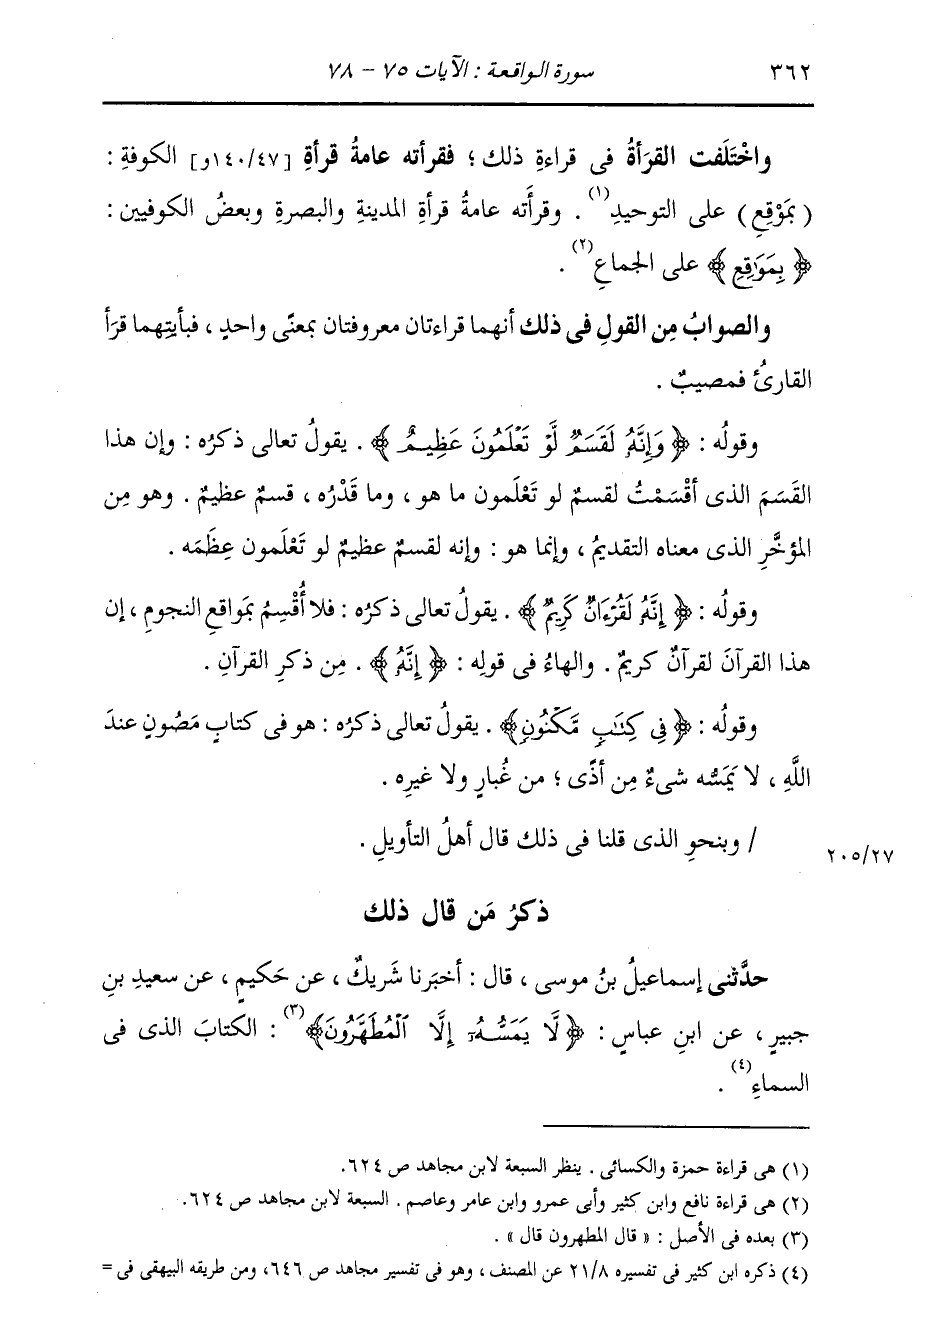 ٣٦٢ سورة الواقعة : الآيات ٧٥ – ٧٨
واخْتَلَفت القرَأةُ فى قراءةِ ذلك ؛ فقرأته عامةُ قرأةِ [٤٧/ ١٤٠و] الكوفةِ :
( بمَوْقِعِ ) على التوحيدِ(١) . وقرأَته عامةُ قرأةِ المدينةِ والبصرةِ وبعضُ الكوفيين :
﴿ بِمَوَٰقِعِ ﴾ على الجماعِ(٢) .
والصوابُ مِن القولِ فى ذلك أنهما قراءتان معروفتان بمعنًى واحدٍ ، فبأيتِهما قرَأ
القارئُ فمصيبٌ .
وقولُه : ﴿ وَإِنَّهُۥ لَقَسَمٌ لَّوْ تَعْلَمُونَ عَظِيمٌ ﴾ . يقولُ تعالى ذكرُه : وإن هذا
القَسَمَ الذى أقْسَمْتُ لقسمٌ لو تَعْلَمون ما هو ، وما قَدْرُه ، قسمٌ عظيمٌ . وهو مِن
المؤخَّرِ الذى معناه التقديمُ ، وإنما هو : وإنه لقسمٌ عظيمٌ لو تَعْلَمون عِظَمَه .
وقولُه : ﴿ إِنَّهُۥ لَقُرْءَانٌ كَرِيمٌ ﴾ . يقولُ تعالى ذكرُه : فلا أُقْسِمُ بمَواقعِ النجومِ ، إن
هذا القرآنَ لقرآنٌ كريمٌ . والهاءُ فى قولِه : ﴿ إِنَّهُۥ ﴾ . مِن ذكرِ القرآنِ .
وقولُه : ﴿ فِى كِتَٰبٍ مَّكْنُونٍ ﴾ . يقولُ تعالى ذكرُه : هو فى كتابٍ مَصُونٍ عندَ
اللَّهِ ، لا يَمَسُّه شىءٌ مِن أذًى ؛ من غُبارٍ ولا غيرِه .
/ وبنحوِ الذى قلنا فى ذلك قال أهلُ التأويلِ . ٢٠٥/٢٧
ذكرُ مَن قال ذلك
حدَّثنى إسماعيلُ بنُ موسى ، قال : أخبَرنا شَريكٌ ، عن حَكيمٍ ، عن سعيدِ بنِ
جبيرٍ ، عن ابنِ عباسٍ : ﴿ لَّا يَمَسُّهُۥٓ إِلَّا ٱلْمُطَهَّرُونَ ﴾(٣) : الكتابَ الذى فى
السماءِ(٤) .
(١) هى قراءة حمزة والكسائى . ينظر السبعة لابن مجاهد ص ٦٢٤.
(٢) هى قراءة نافع وابن كثير وأبى عمرو وابن عامر وعاصم . السبعة لابن مجاهد ص ٦٢٤.
(٣) بعده فى الأصل : « قال المطهرون قال » .
(٤) ذكره ابن كثير فى تفسيره ٢١/٨ عن المصنف ، وهو فى تفسير مجاهد ص ٦٤٦، ومن طريقه البيهقى فى =